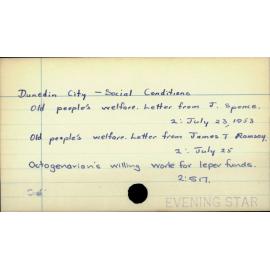 Dunedin City - Social Conditions
Old people's welfare. Letter from J. Spence.
2: July 23, 1953
Old people's welfare. Letter from James T. Ramsay.
2: July 25
Octogenarian's willing work for leper funds.
2: S17.
EVENING STAR